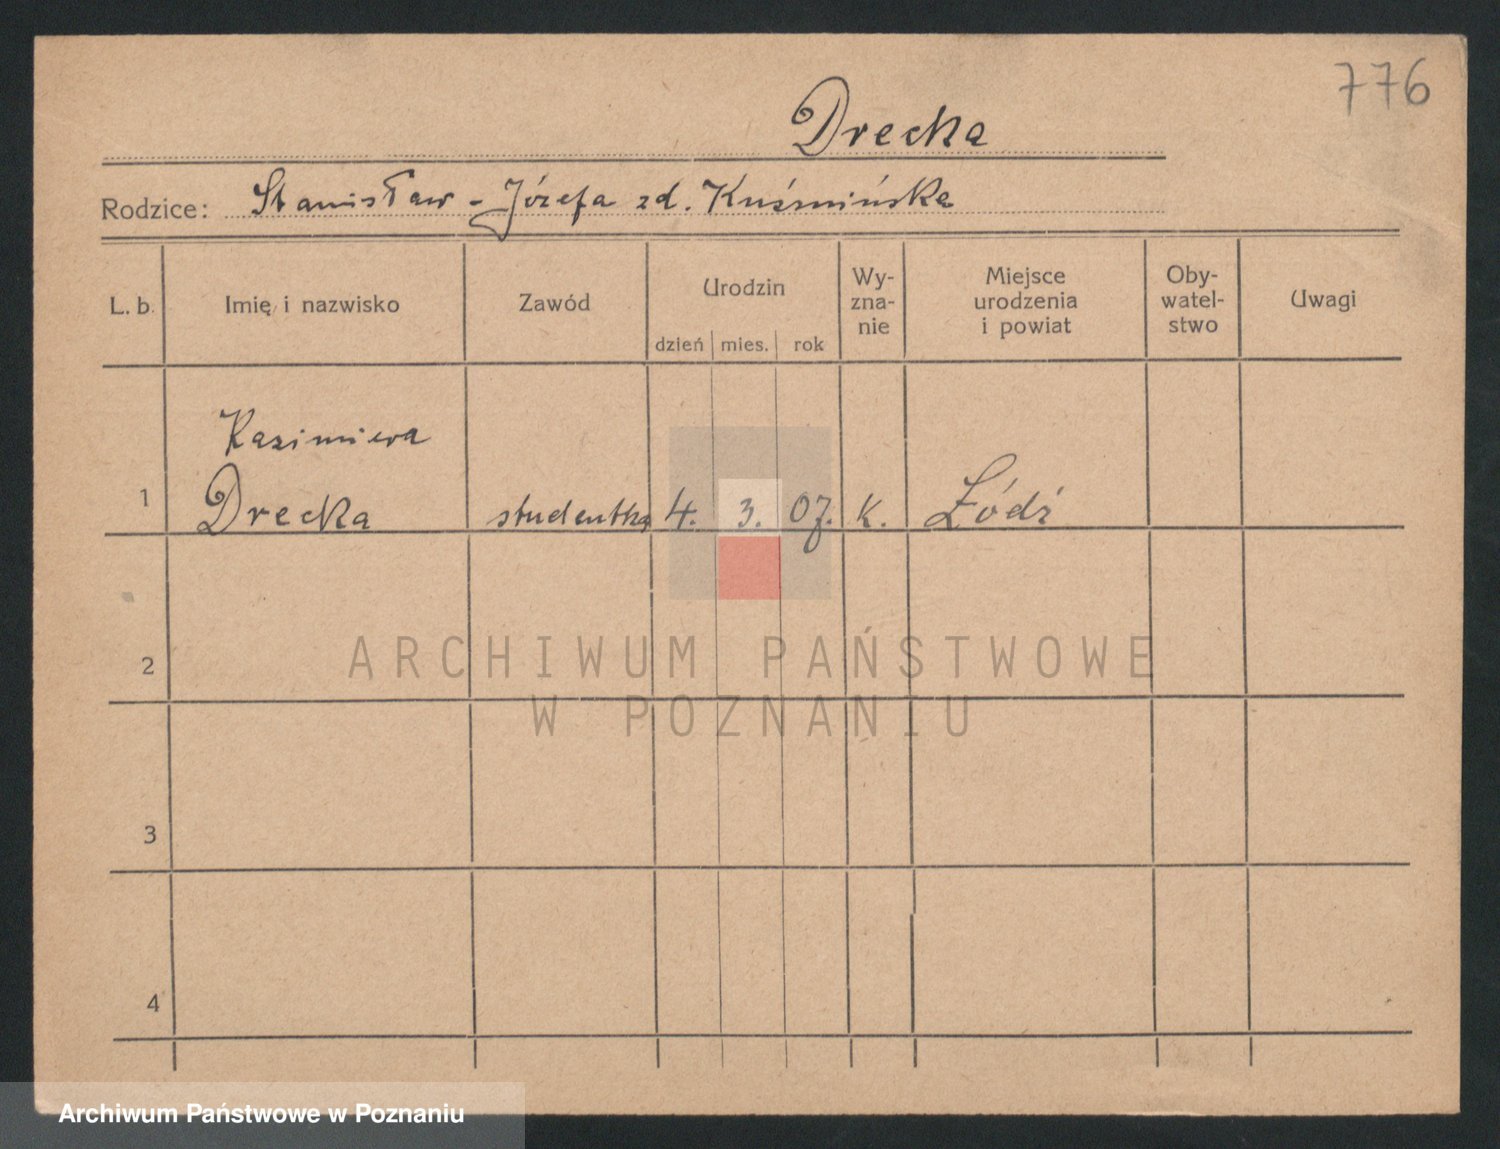 776
Drecka
Rodzice: Stanisław - Józefa zd. Kuśmińska
L. b. Imię i nazwisko Zawód Urodzin Wy-zna-nie Miejsce urodzenia i powiat Oby-watel-stwo Uwagi
dzień mies. rok
Kazimiera
1 Drecka studentka 4. 3. 07. k. Łódź
2
ARCHIWUM PAŃSTWOWE
W POZNANIU
3
4
Archiwum Państwowe w Poznaniu